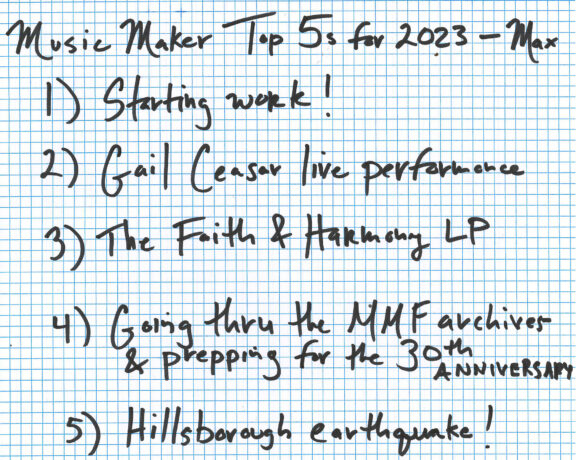 Music Maker Top 5s for 2023 - Max
1) Starting work!
2) Gail Ceasar live performance
3) The Faith & Harmony LP
4) Going thru the MMF archives
& prepping for the 30th
ANNIVERSARY
5) Hillsborough earthquake!